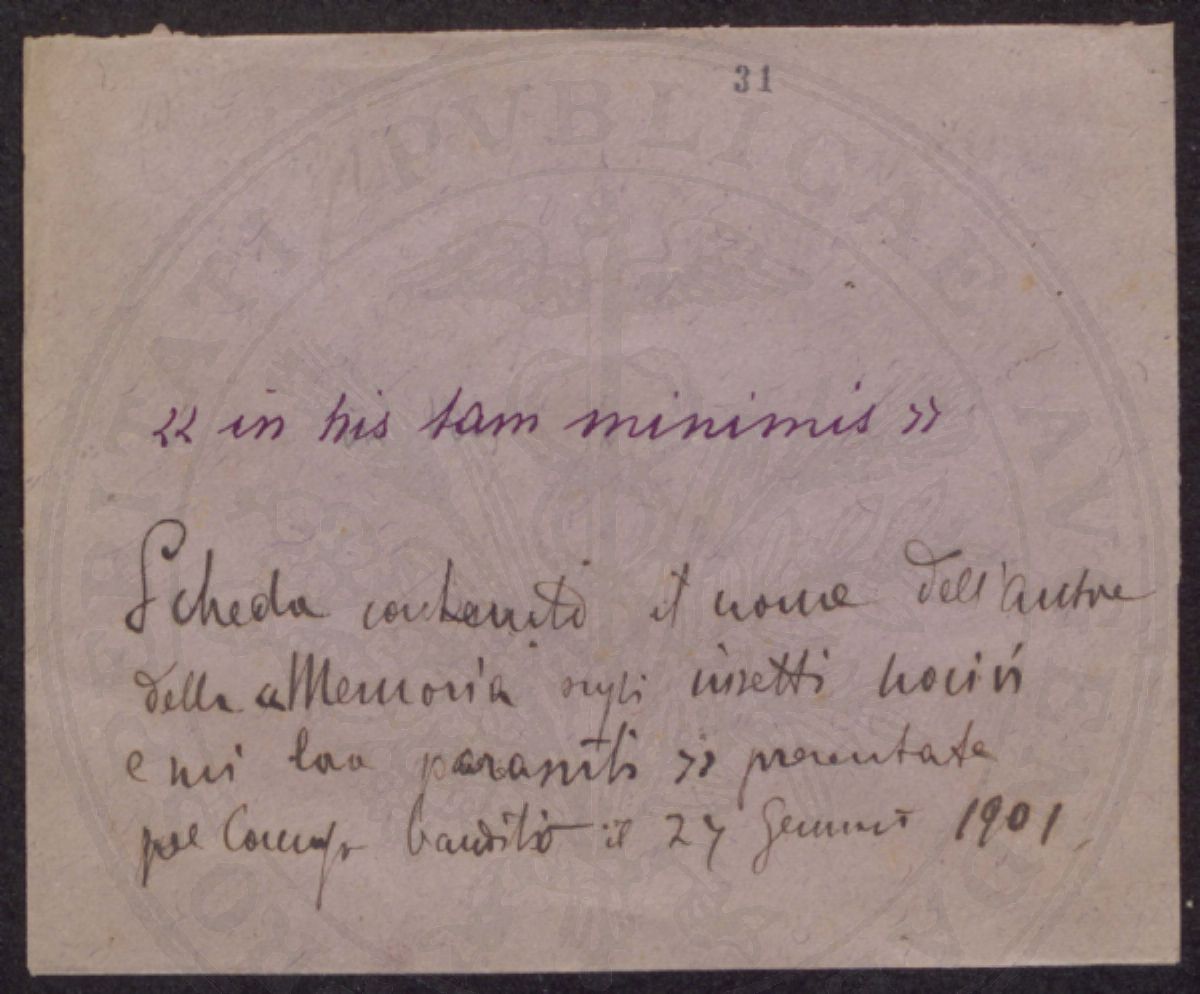 31
« in his tam minimis »
Scheda contenente il nome dell'autore
della « Memoria sugli insetti nocivi
e sui loro parassiti » presentata
pel Concorso bandito il 27 Gennaio 1901